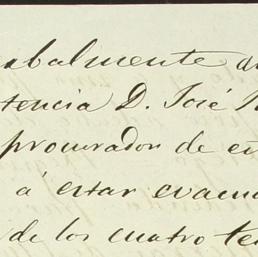 balmente
tencia D. José
procurador de
á estar evacua
de los cuatro te